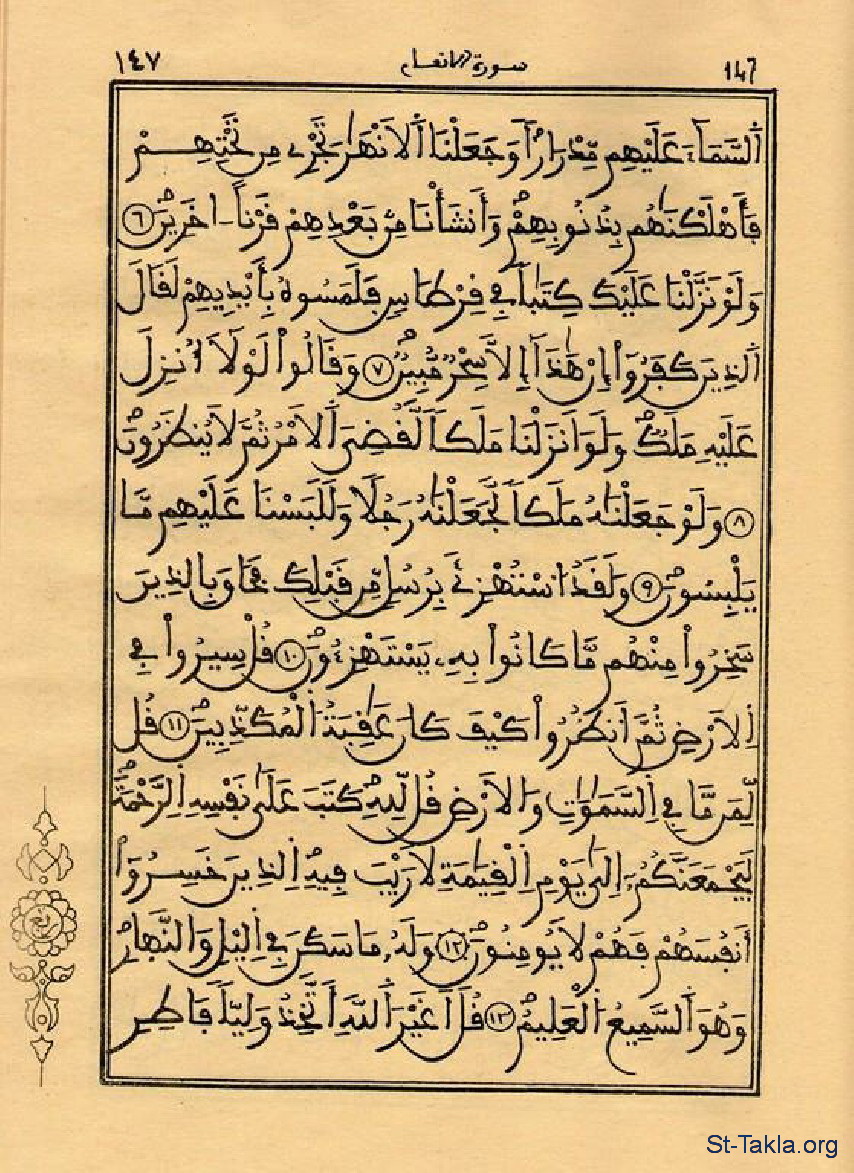 ١٤٧ سورة الانعام 147
اَ۬لسَّمَآءَ عَلَيْهِم مِّدْرَاراٗ وَجَعَلْنَا اَ۬لَانْهَٰرَ تَجْرِے مِن تَحْتِهِمْ
فَأَهْلَكْنَٰهُم بِذُنُوبِهِمْ وَأَنشَأْنَا مِنۢ بَعْدِهِمْ قَرْناً اٰخَرِينَ ٦
وَلَوْ نَزَّلْنَا عَلَيْكَ كِتَٰباٗ فِے قِرْطَاسٖ فَلَمَسُوهُ بِأَيْدِيهِمْ لَقَالَ
اَ۬لذِينَ كَفَرُوٓاْ إِنْ هَٰذَآ إِلَّا سِحْرٞ مُّبِينٞ ٧ وَقَالُواْ لَوْلَآ أُنزِلَ
عَلَيْهِ مَلَكٞ وَلَوَ اَنزَلْنَا مَلَكاٗ لَّقُضِيَ اَ۬لَامْرُ ثُمَّ لَا يُنظَرُونَ
٨ وَلَوْ جَعَلْنَٰهُ مَلَكاٗ لَّجَعَلْنَٰهُ رَجُلاٗ وَلَلَبَسْنَا عَلَيْهِم مَّا
يَلْبِسُونَ ٩ وَلَقَدُ اُ۟سْتُهْزِئَ بِرُسُلٖ مِّن قَبْلِكَ فَحَاقَ بِالذِينَ
سَخِرُواْ مِنْهُم مَّا كَانُواْ بِهِۦ يَسْتَهْزِءُونَ ١٠ قُلْ سِيرُواْ فِے
اِ۬لَارْضِ ثُمَّ اَ۟نظُرُواْ كَيْفَ كَانَ عَٰقِبَةُ اُ۬لْمُكَذِّبِينَ ١١ قُل
لِّمَن مَّا فِے اِ۬لسَّمَٰوَٰتِ وَالَارْضِ قُل لِّلهِ كَتَبَ عَلَىٰ نَفْسِهِ اِ۬لرَّحْمَةَ
لَيَجْمَعَنَّكُمُۥٓ إِلَىٰ يَوْمِ اِ۬لْقِيَٰمَةِ لَا رَيْبَ فِيهِ اِ۬لذِينَ خَسِرُوٓاْ
أَنفُسَهُمْ فَهُمْ لَا يُومِنُونَ ١٢ وَلَهُۥ مَا سَكَنَ فِے اِ۬ليْلِ وَالنَّهَارِ
وَهُوَ اَ۬لسَّمِيعُ اُ۬لْعَلِيمُ ١٣ قُلَ اَغَيْرَ اَ۬للَّهِ أَتَّخِذُ وَلِيّاٗ فَاطِرِ
St-Takla.org